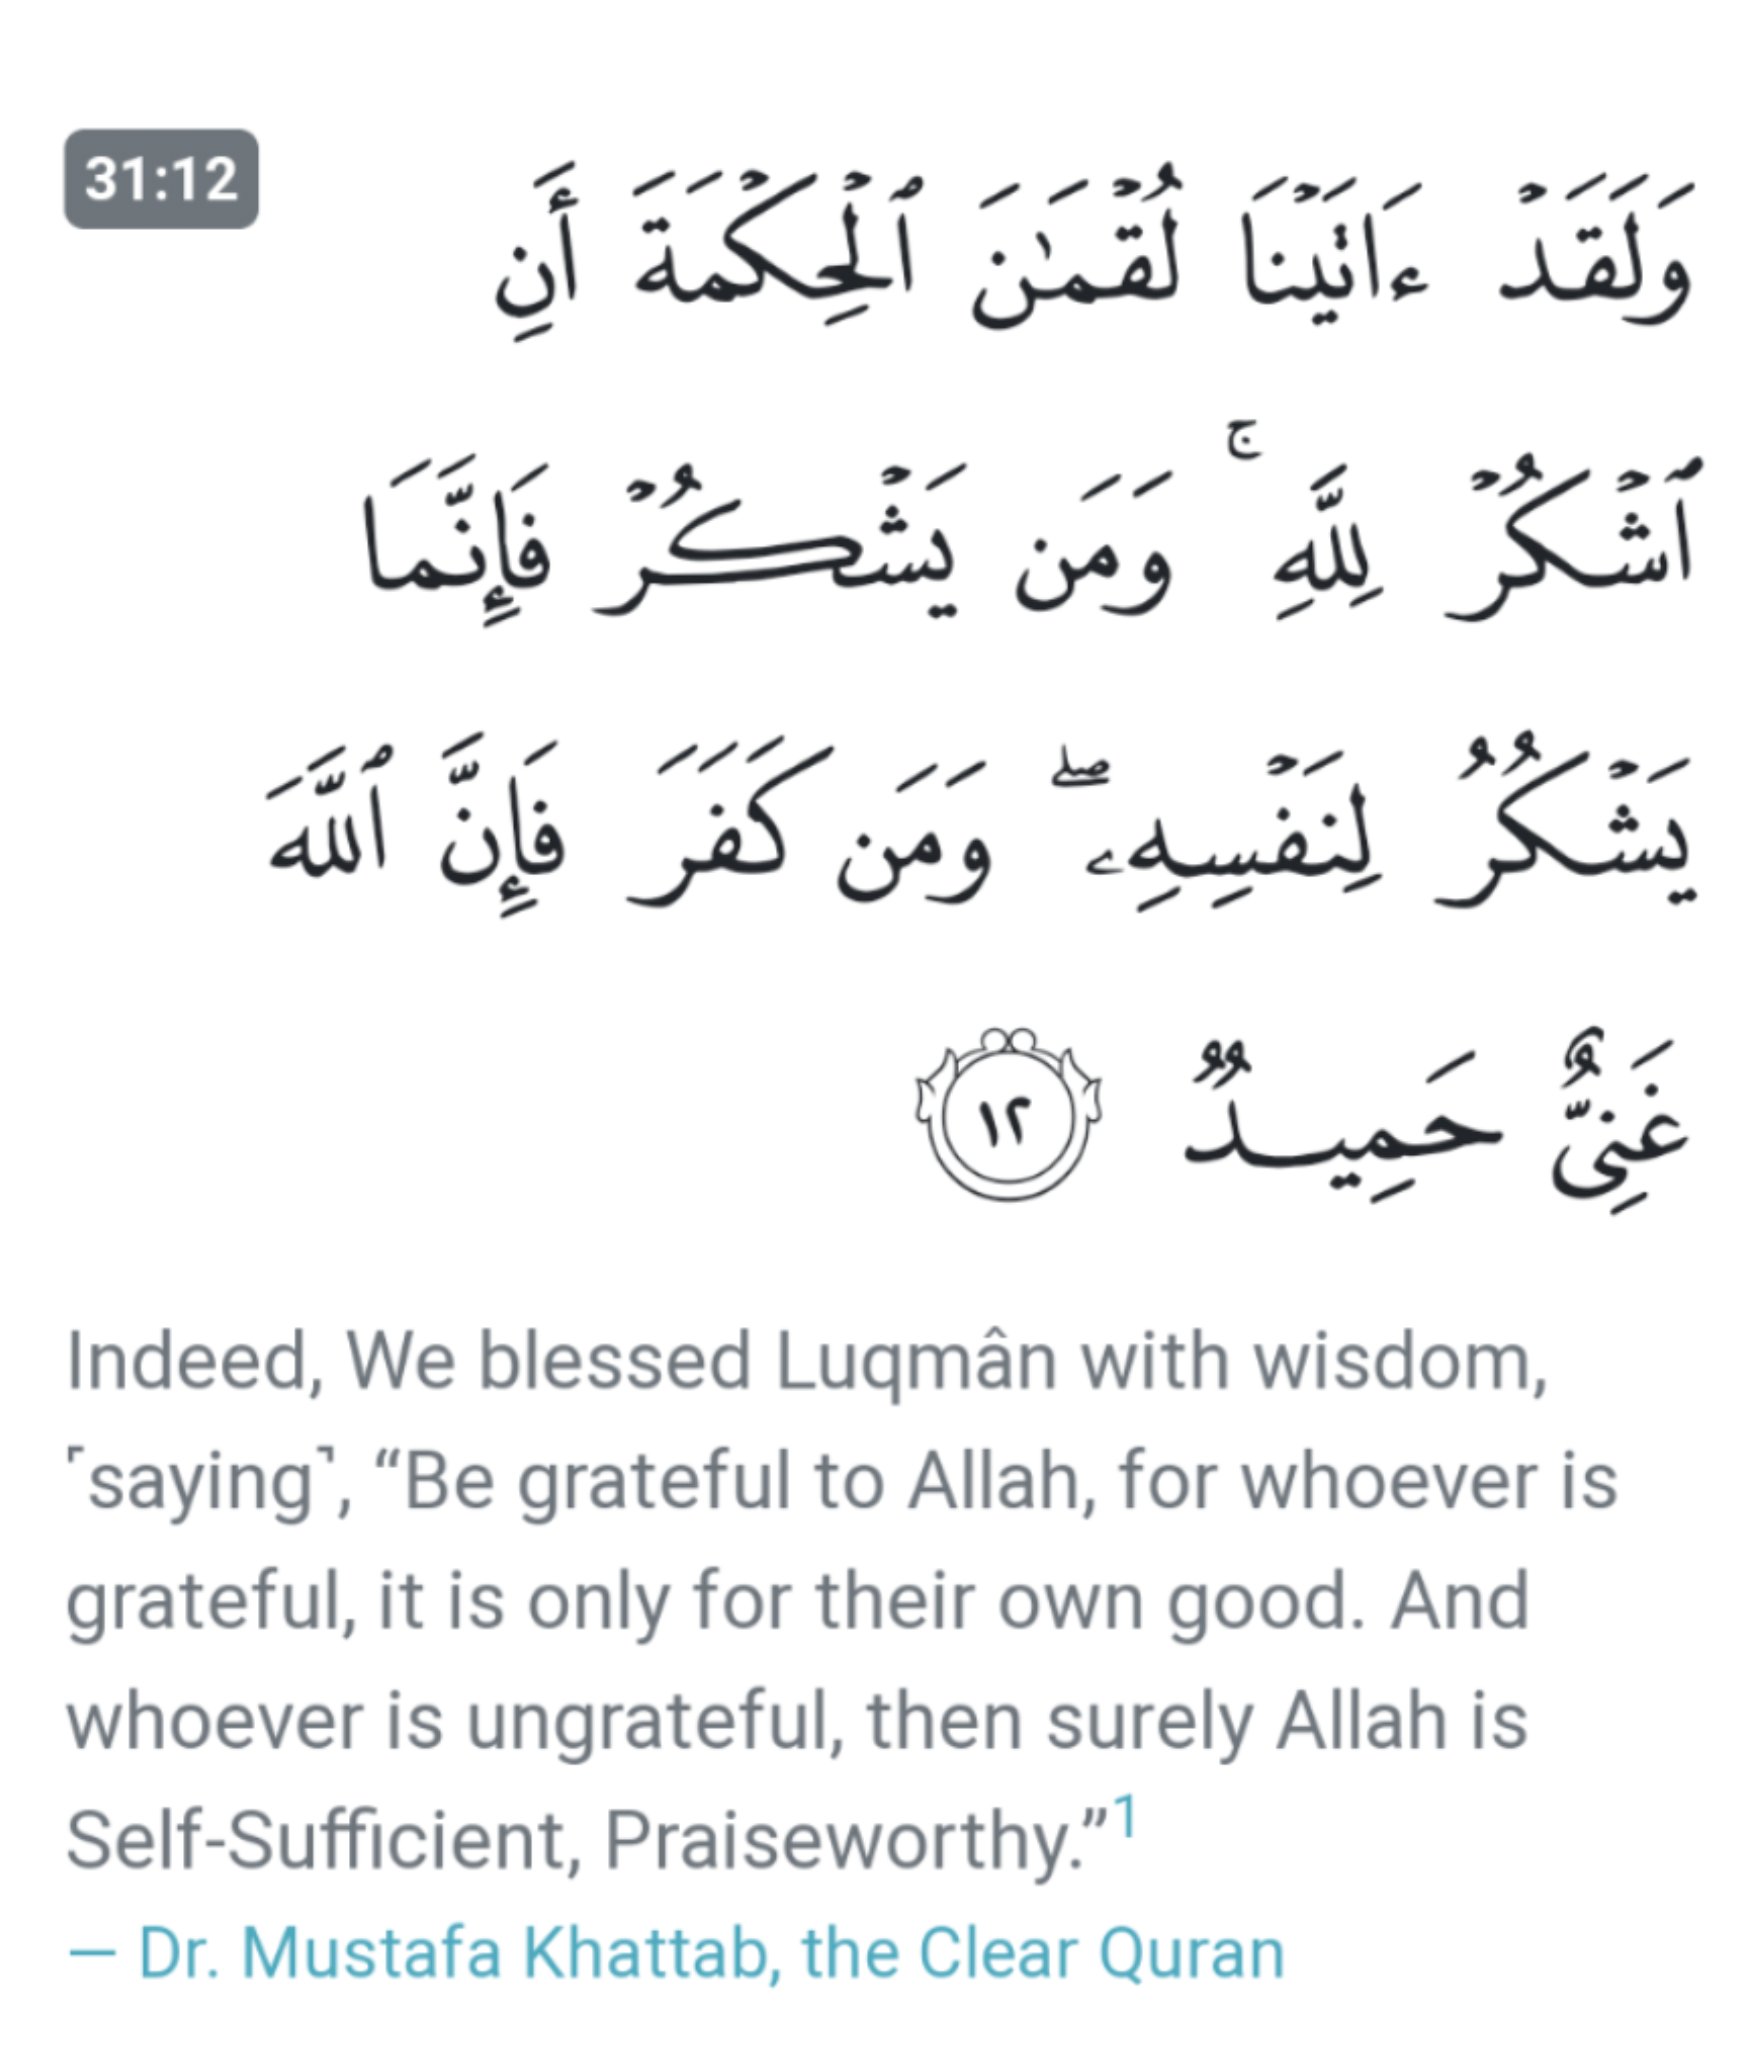 31:12
وَلَقَدۡ ءَاتَيۡنَا لُقۡمَٰنَ ٱلۡحِكۡمَةَ أَنِ
ٱشۡكُرۡ لِلَّهِۚ وَمَن يَشۡكُرۡ فَإِنَّمَا
يَشۡكُرُ لِنَفۡسِهِۦۖ وَمَن كَفَرَ فَإِنَّ ٱللَّهَ
غَنِيٌّ حَمِيدٌ ١٢
Indeed, We blessed Luqmân with wisdom,
˹saying˺, “Be grateful to Allah, for whoever is
grateful, it is only for their own good. And
whoever is ungrateful, then surely Allah is
Self-Sufficient, Praiseworthy.”1
— Dr. Mustafa Khattab, the Clear Quran